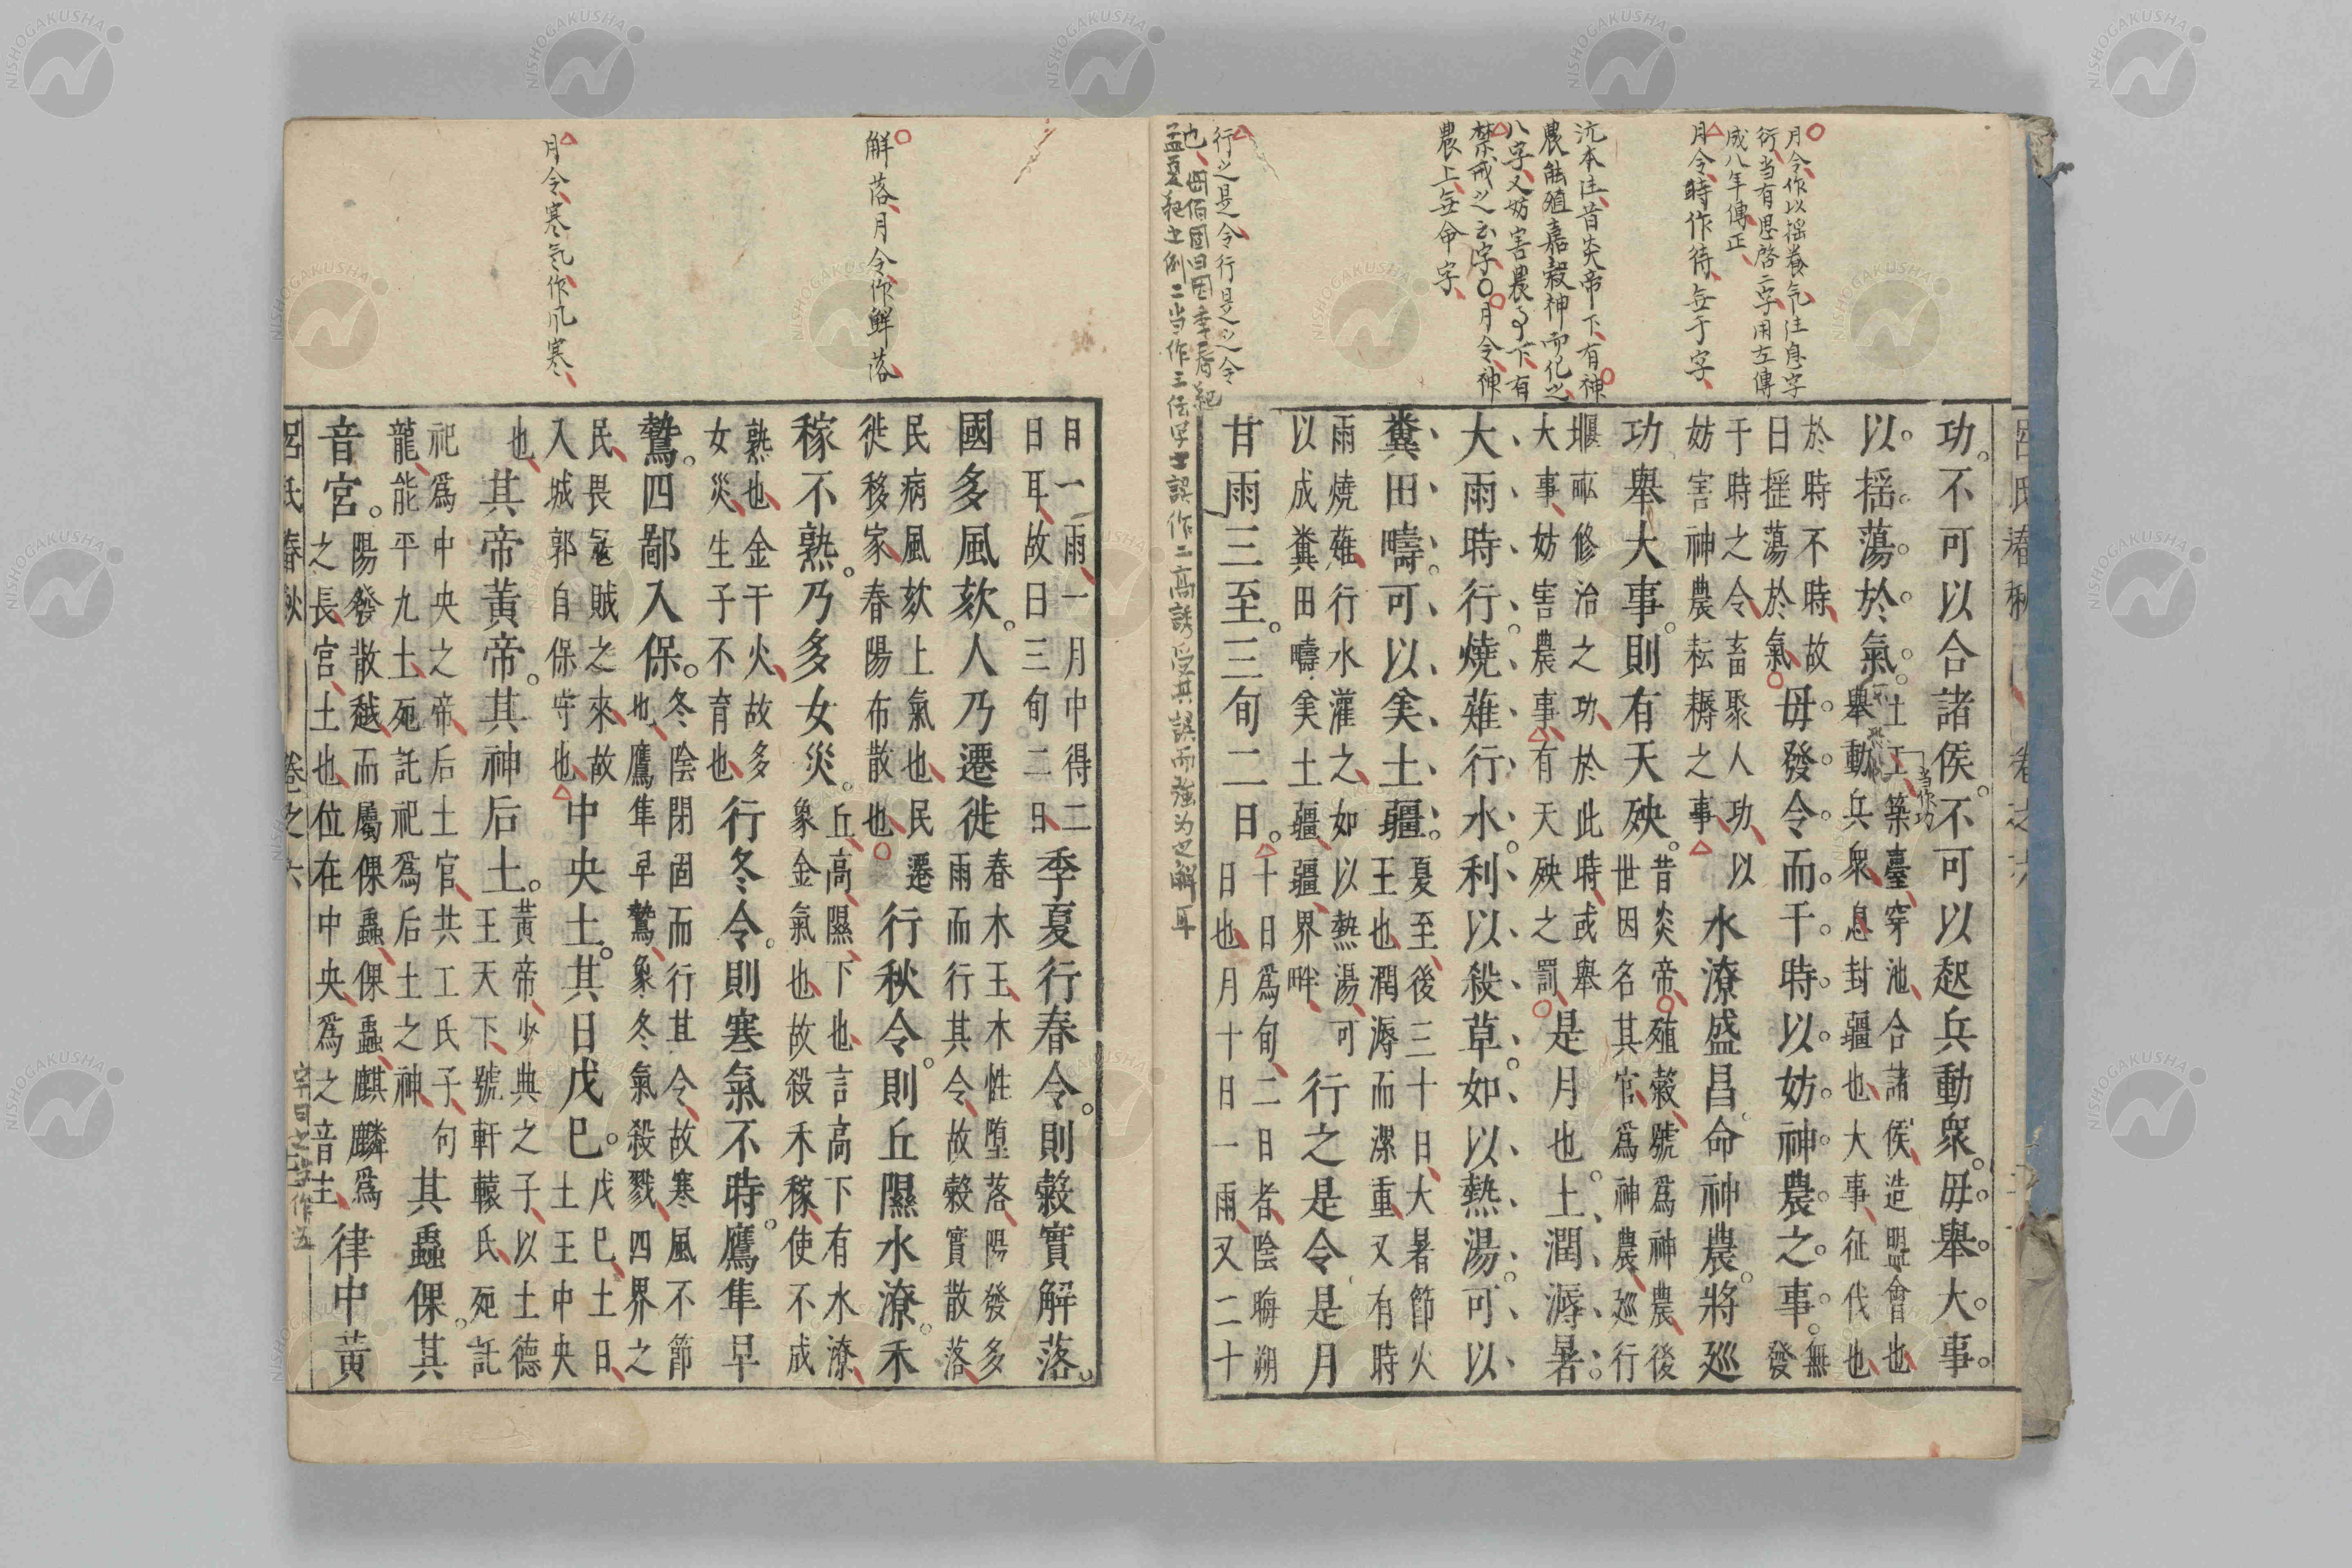 月令作以揺養気注息字
衍当有思啓二字用左傳
成八年傳正
月令時作待無于字
沆本注昔炎帝下有神
農能殖嘉穀神而化之
八字又妨害農事下有
禁戒之云字〇月令神
農上無命字
行之是令行是之令
也四佰国曰因季春紀
孟夏紀之例二当作三
功。不可以合諸侯。不可以起兵動衆。毋舉大事。
以揺蕩於氣。土工築臺穿池合諸侯造盟會也
舉動兵衆息封疆也大事征伐也
当作功
於時不時故
曰揺蕩於氣毋發令而干時以妨神農之事。無
發
干時之令畜聚人功以
妨害神農耘耨之事水潦盛昌命神農。將巡
功舉大事。則有天殃。昔炎帝殖穀號爲神農後
世因名其官爲神農巡行
堰畝修治之功於此時或舉
大事妨害農事有天殃之罰是月也。土潤溽暑。
大雨時行。燒薙行水。利以殺草。如以熱湯。可以
糞田疇。可以美土疆。夏至後三十日大暑節火
王也潤溽而潔重又有時
雨燒薙行水灌之如以熱湯可
以成糞田疇美土疆疆界畔行之是令是月
甘雨三至。三旬二日。十日爲旬二日者陰晦朔
日也月十日一雨又二十
呂氏春秋 卷之六
解落月令作鮮落
月令寒気作風寒
日一雨一月中得二
日耳故曰三旬二日季夏行春令。則穀實解落。
國多風欬。人乃遷徙春木王木性墮落陽發多
雨而行其令故穀實散落
民病風欬上氣也民遷
徙移家春陽布散也行秋令。則丘隰水潦。禾
稼不熟。乃多女災。丘高隰下也言高下有水潦
象金氣也故殺禾稼使不成
熟也金干火故多
女災生子不育也行冬令。則寒氣不時。鷹隼早
鷙。四鄙入保。冬陰閉固而行其令故寒風不節
也鷹隼早鷙象冬氣殺戮四界之
民畏寇賊之來故
入城郭自保守也中央土。其日戊巳。戊巳土日
土王中央
也其帝黃帝。其神后土。黃帝少典之子以土德
王天下號軒轅氏死託
祀爲中央之帝后土官共工氏子句
龍能平九土死託祀爲后土之神其蟲倮。其
音宮。陽發散越而屬倮蟲倮蟲麒麟爲
之長宮土也位在中央爲之音主律中黃
呂氏春秋 卷之六
NISHOGAKUSHA